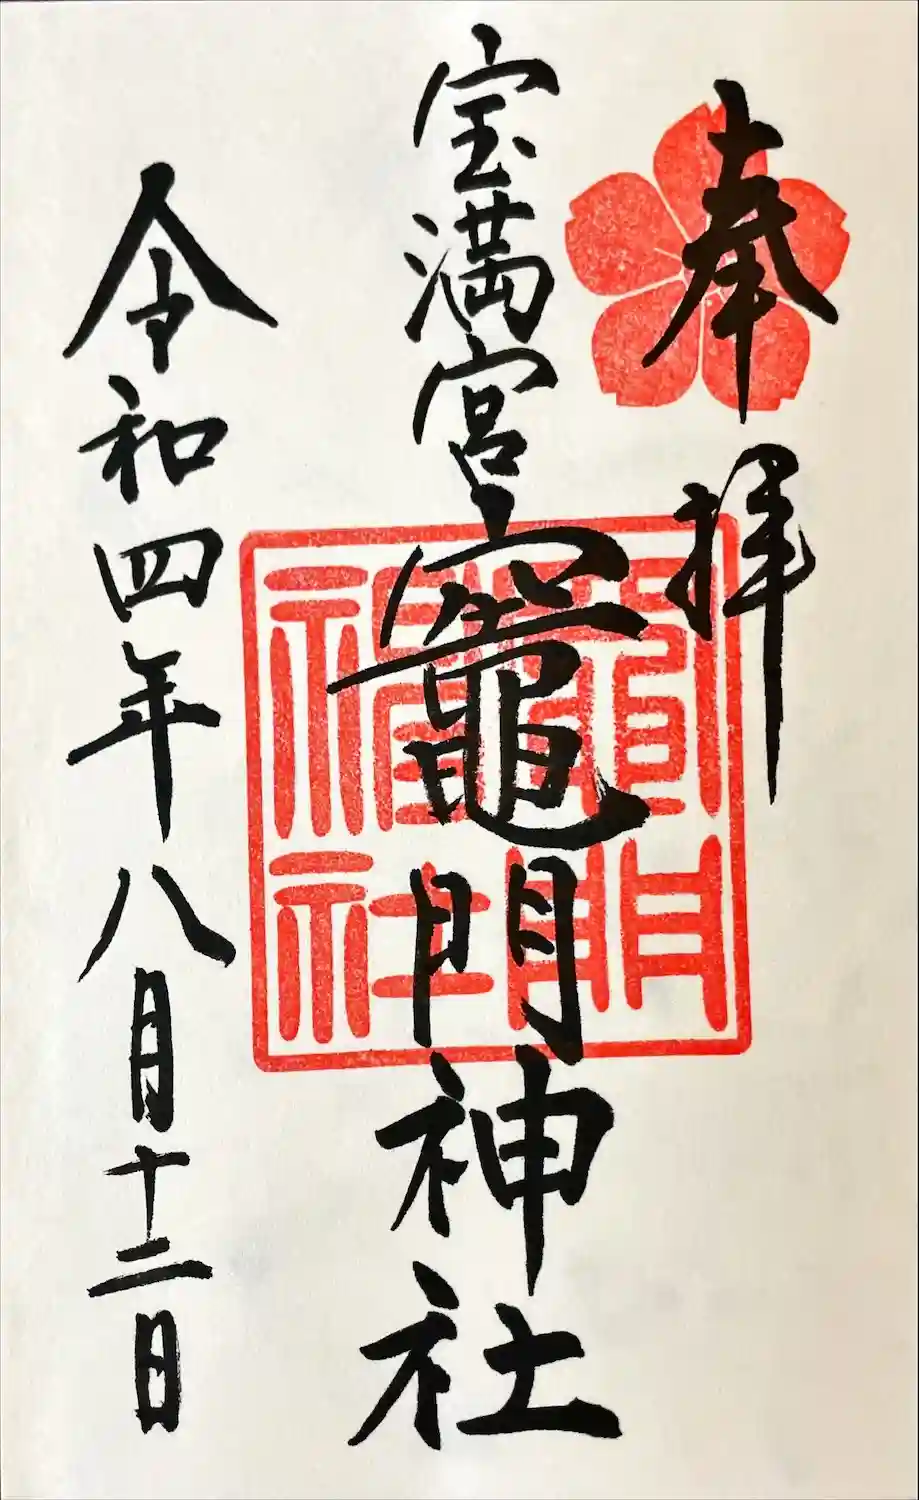 奉拝
宝満宮竈門神社
令和四年八月十二日